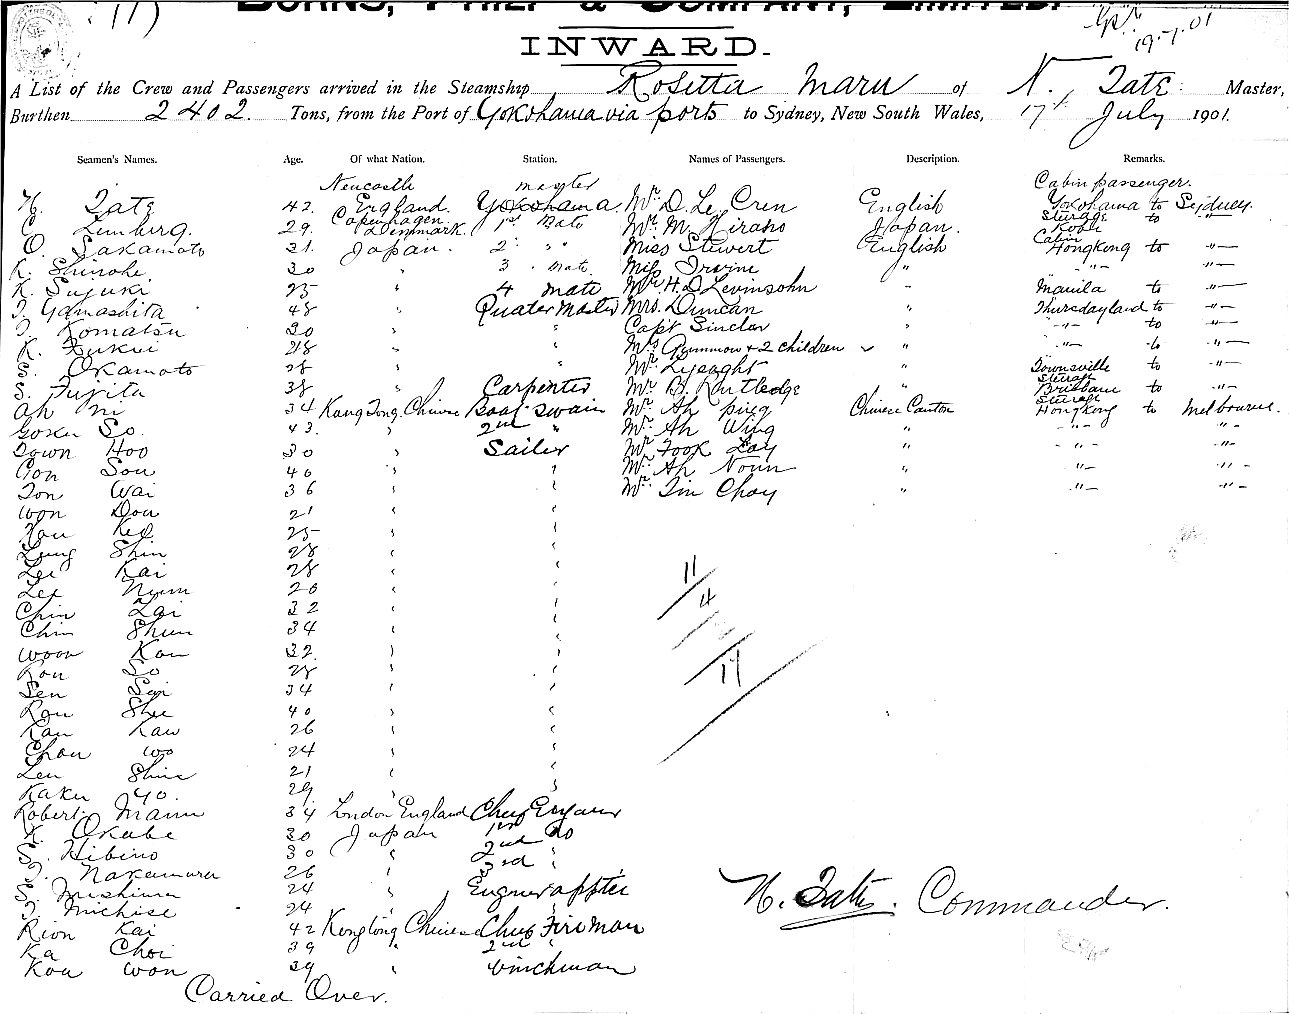 (17)
BURNS, PHILP & COMPANY, LIMITED.
19-7-01
INWARD.
A List of the Crew and Passengers arrived in the Steamship Rosetta Maru of N. Tate Master,
Burthen 2402. Tons, from the Port of Yokohama via ports to Sydney, New South Wales, 17th July 1901.
Seamen's Names. Age. Of what Nation. Station. Names of Passengers. Description. Remarks.
Newcastle master Cabin passenger.
N. Tate 42. England Yokohama Mr D. Le Cren English Yokohama to Sydney
C. Lemberg. 29. Copenhagen Denmark. 1st Mate Mr. M. Hirano Japan. Steerage Kobe to "
O. Sakamoto 31. Japan. 2 " " Miss Stewert English Cabin Hongkong to "
K. Shinohe 30 " 3 " Mate Miss Irvine " " "
K. Suzuki 25 " 4 Mate Mr H. D. Levinsohn " Manila to "
T. Yamashita 48 " Quater Master Mrs. Duncan " Thursdayland to "
T. Komatsu 30 " " Capt Sinclar " " to "
K. Fukui 28 " " Mrs Gummow + 2 children " " to "
S. Okamoto 28 " " Mr. Lysaght " Townsville to "
S. Fujita 38 " Carpenter Mr. B. Rutledge " Steerage Brisbane to "
Ah Ni 34 Kang Tong, Chinese Boat swain Mr. Ah ping Chinese Canton Steerage Hongkong to Melbourne.
Goku So. 43. " 2nd " Mr. Ah Wing " " "
Down Hoo 30 " Sailer Mr. Fook Lay " " "
Gon Sou 40 " " Mr. Ah Noun " " "
Ton Wai 36 " " Mr. Tim Choy " " "
Won Dou 21 " "
Kou Kee 25 " "
Lung Shin 28 " "
Lei Kai 28 " "
Lee Nyum 20 " "
Chin Lai 32 " "
Chin Shun 34 " "
Woon Kou 32. " "
Kou So 28 " "
Sen Sai 34 " "
Kou Shee 40 " "
Kau Kaw 26 " "
Chou Wo 24 " "
Leu Shine 21 " "
Kaku Yo. 29 " "
11
4
17
Robert Mann 34 London England Chief Engineer
K. Okabe 30 Japan 1st do
S. Hibino 30 " 2nd "
T. Nakamura 26 " 3rd "
S. Mishima 24 " Engineer apptic
T. Michise 24 " "
Rion Kai 42 Kongtong Chinese Chief Fireman
Ka Choi 39 " 2nd "
Kou Won 39 " Winchman
N. Tate. Commander.
Carried Over.